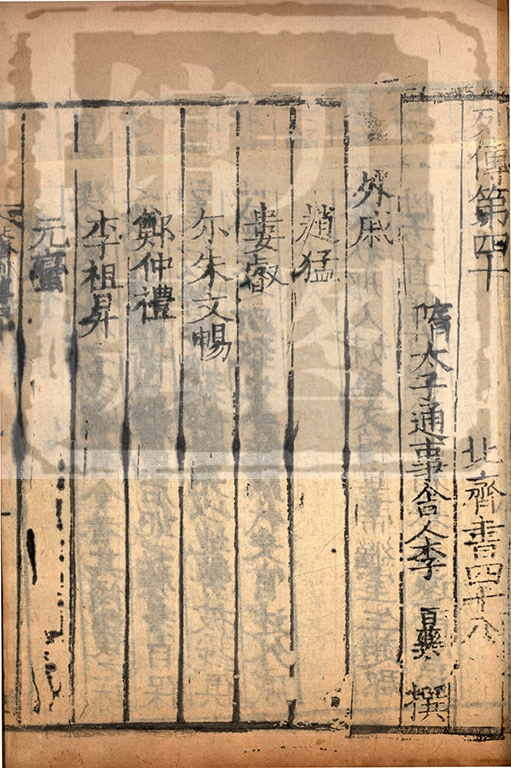 列傳第四十　北齊書四十八
隋太子通事舍人李　百藥　撰
外戚
趙猛
婁叡
尒朱文暢
鄭仲禮
李祖昇
元蠻